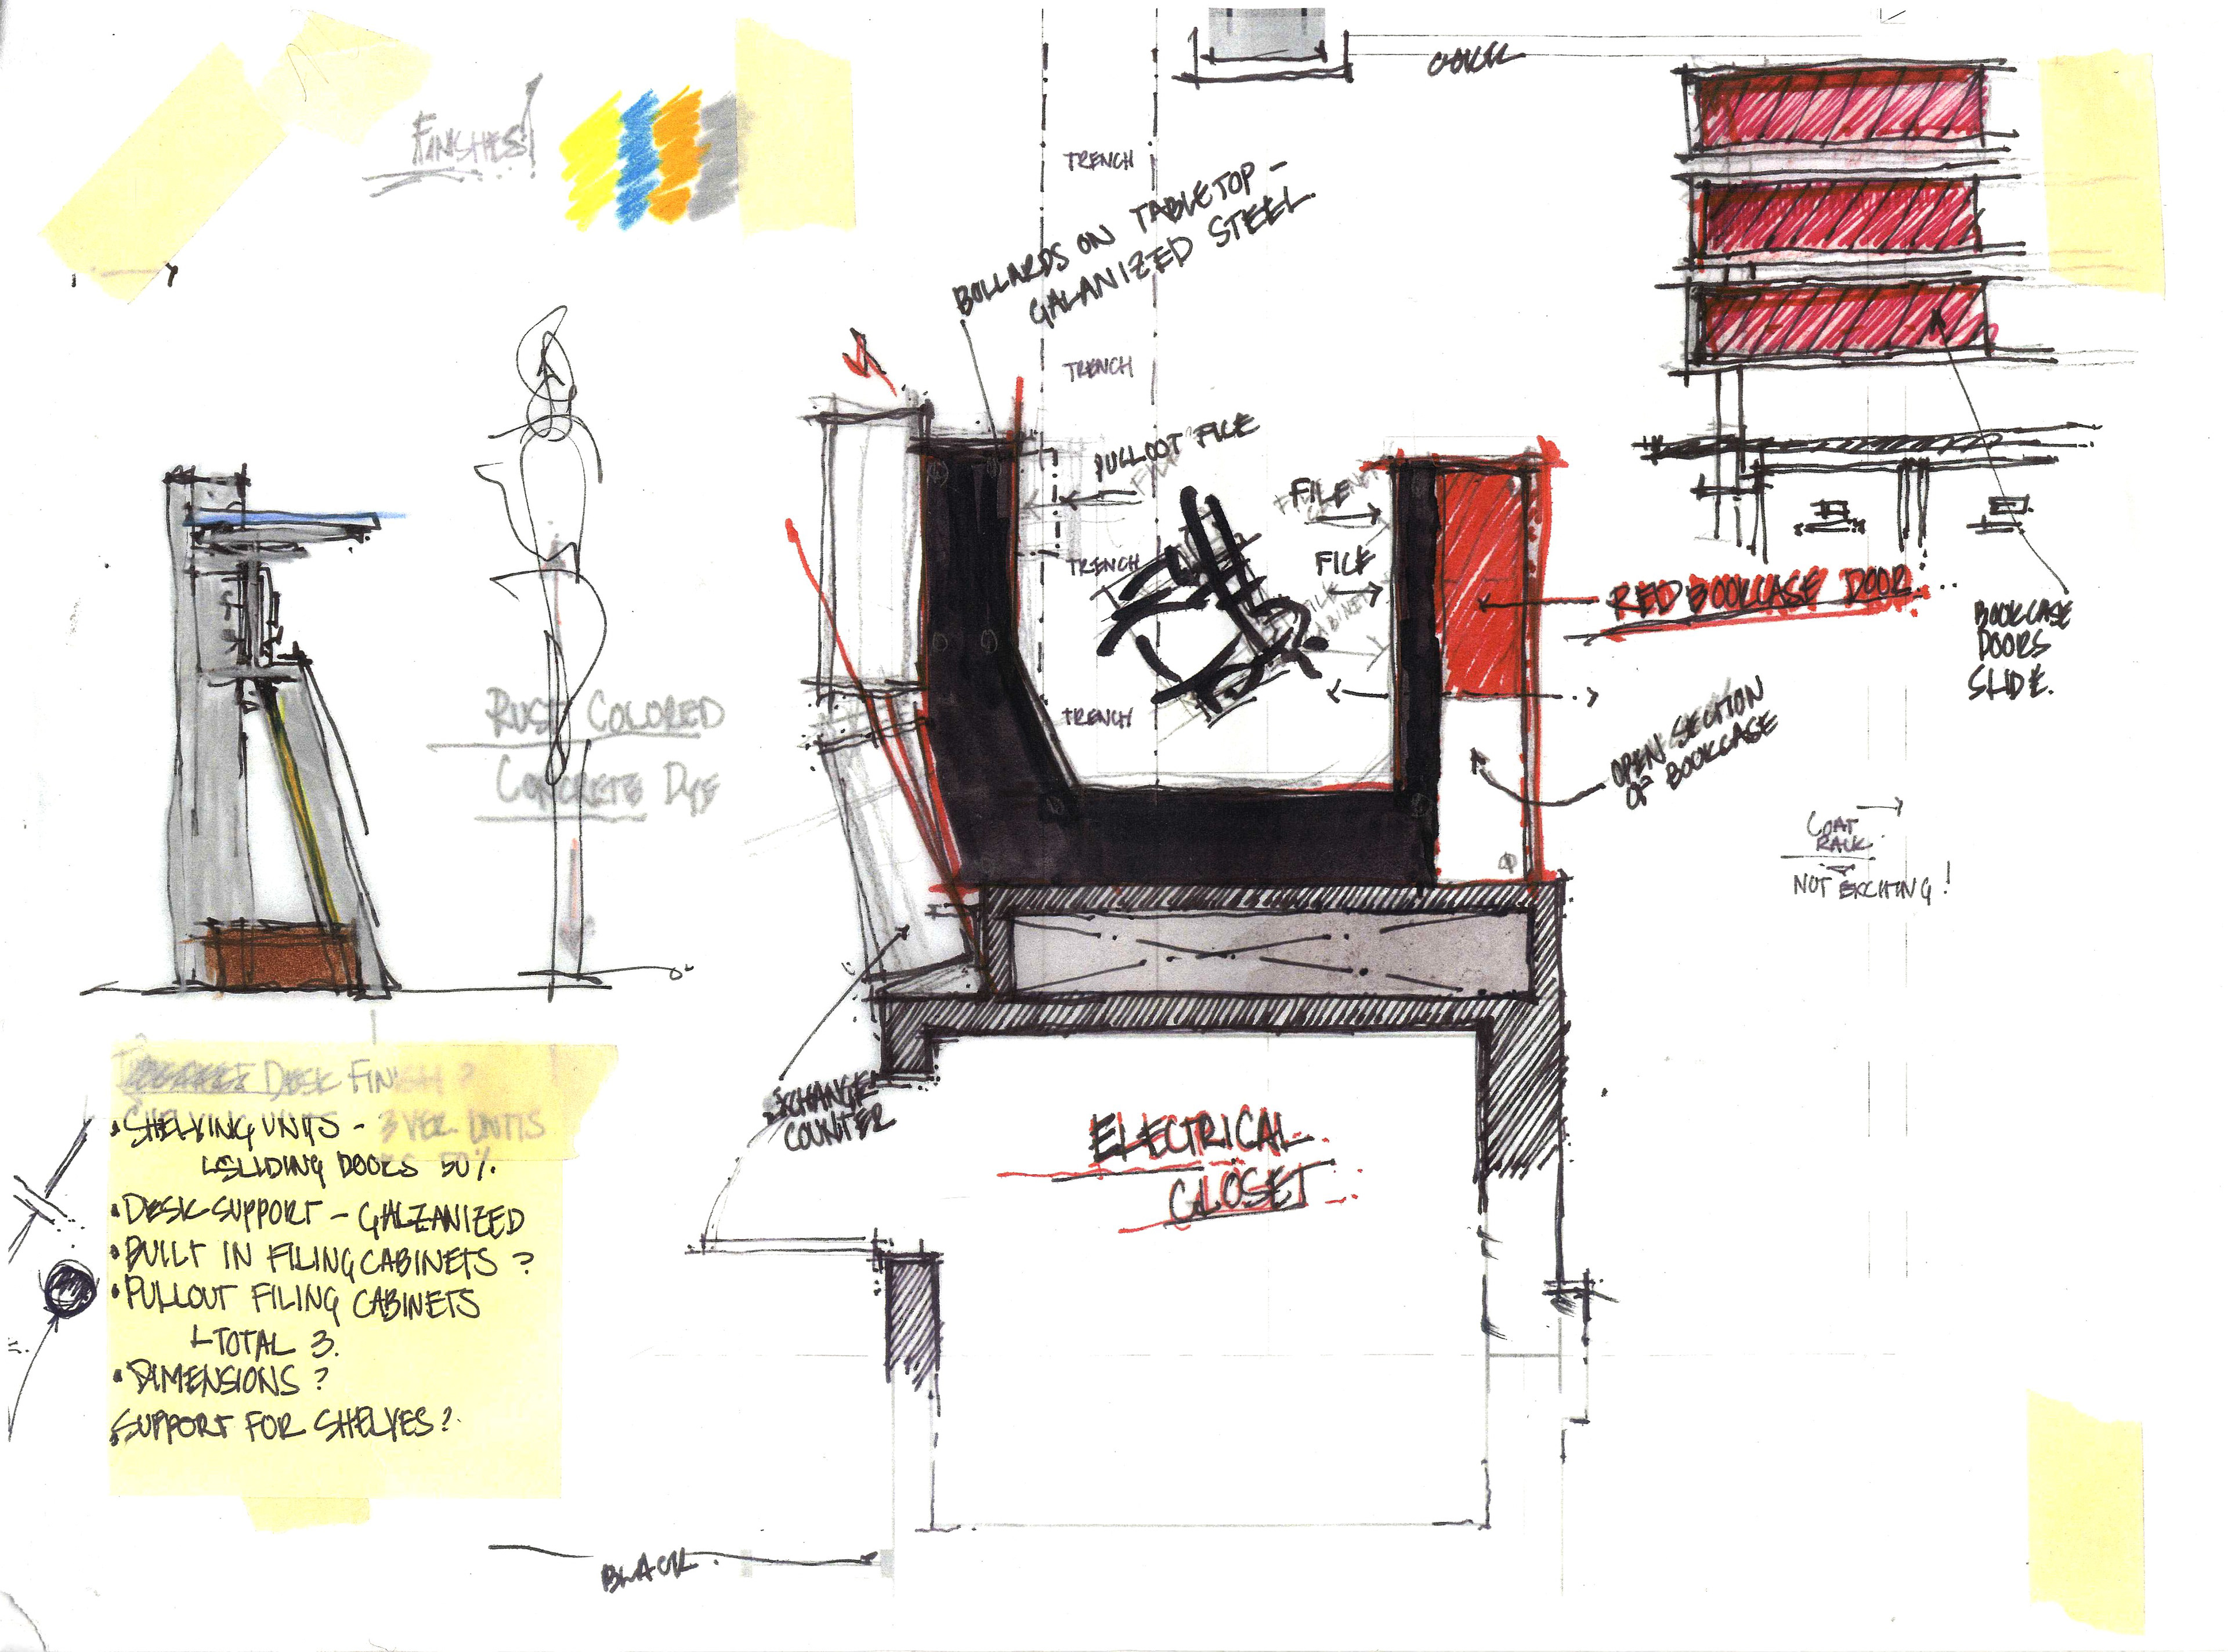 FINISHES!
TRENCH
BOLLARDS ON TABLETOP -
GALANIZED STEEL
TRENCH
PULLOUT FILE
FILE
FILE
TRENCH
TRENCH
RED BOOKCASE DOOR
BOOKCASE
DOORS
SLIDE.
OPEN SECTION
OF BOOKCASE
COAT
RACK
NOT EXCITING!
RUST COLORED
CONCRETE DYE
DESK FINISH?
• SHELVING UNITS - 3 VER. UNITS
SLIDING DOORS 50%.
• DESK SUPPORT - GALZANIZED
• BUILT IN FILING CABINETS ?
• PULLOUT FILING CABINETS
TOTAL 3.
• DIMENSIONS ?
SUPPORT FOR SHELVES ?
EXCHANGE
COUNTER
ELECTRICAL
CLOSET
BLACK